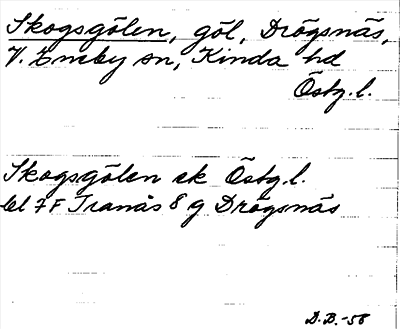 Skogsgölen, göl, Drögsnäs,
V. Eneby sn, Kinda hd
Östg.l.
Skogsgölen ek Östg.l.
bl 7 F Tranås 8 g Drögsnäs
D.B.-58